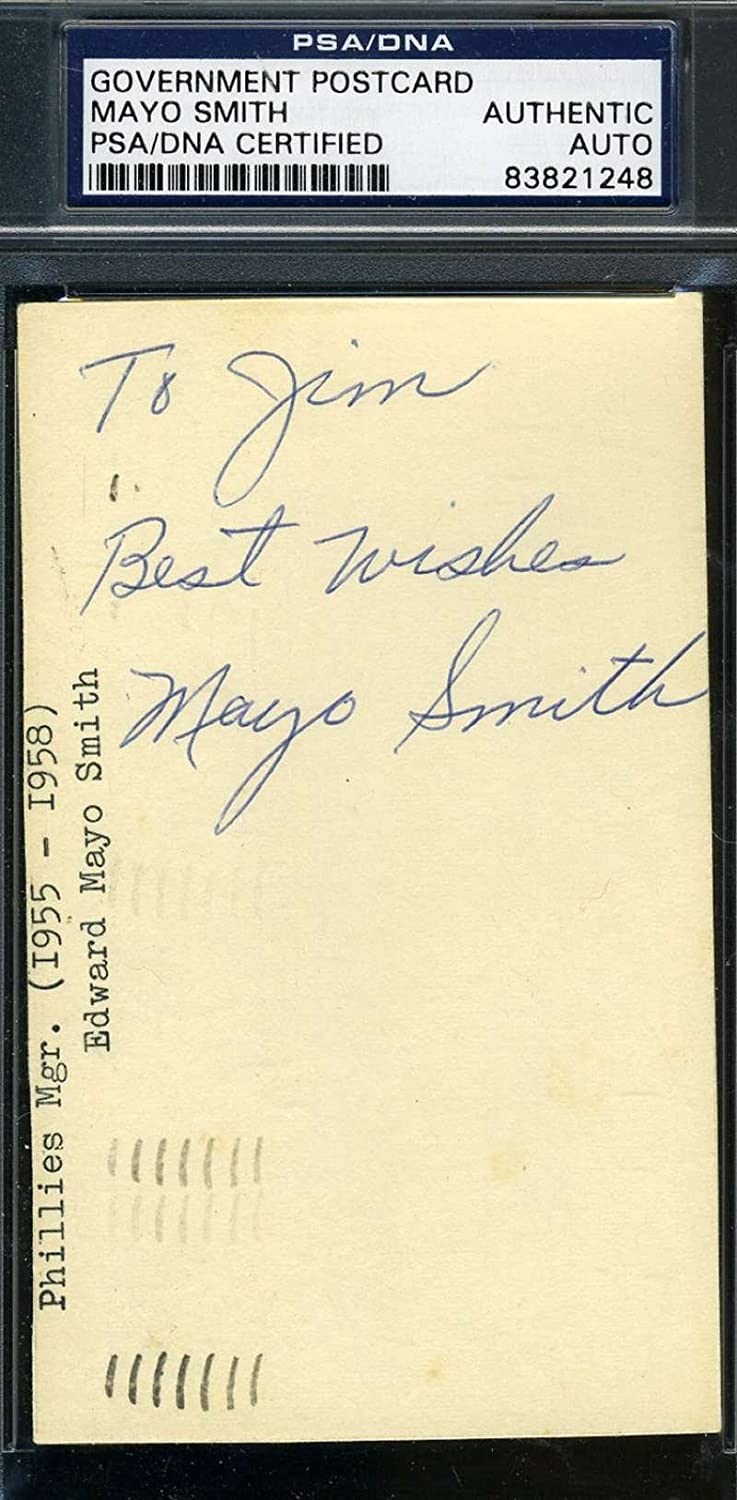 PSA/DNA
GOVERNMENT POSTCARD
MAYO SMITH
PSA/DNA CERTIFIED
AUTHENTIC
AUTO
83821248
To Jim
Best Wishes
Mayo Smith
Phillies Mgr. (I955 - I958)
Edward Mayo Smith